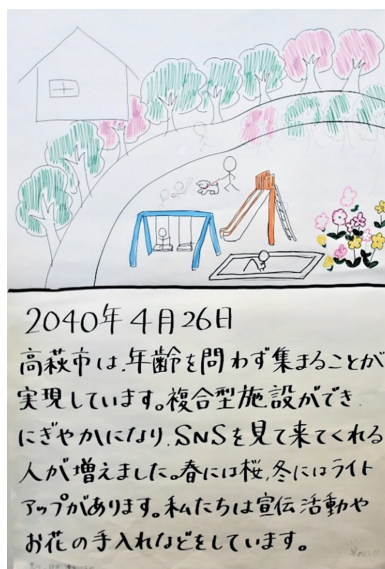 2040年4月26日
高萩市は、年齢を問わず集まることが
実現しています。複合型施設ができ、
にぎやかになり、SNSを見て来てくれる
人が増えました。春には桜、冬にはライト
アップがあります。私たちは宣伝活動や
お花の手入れなどをしています。